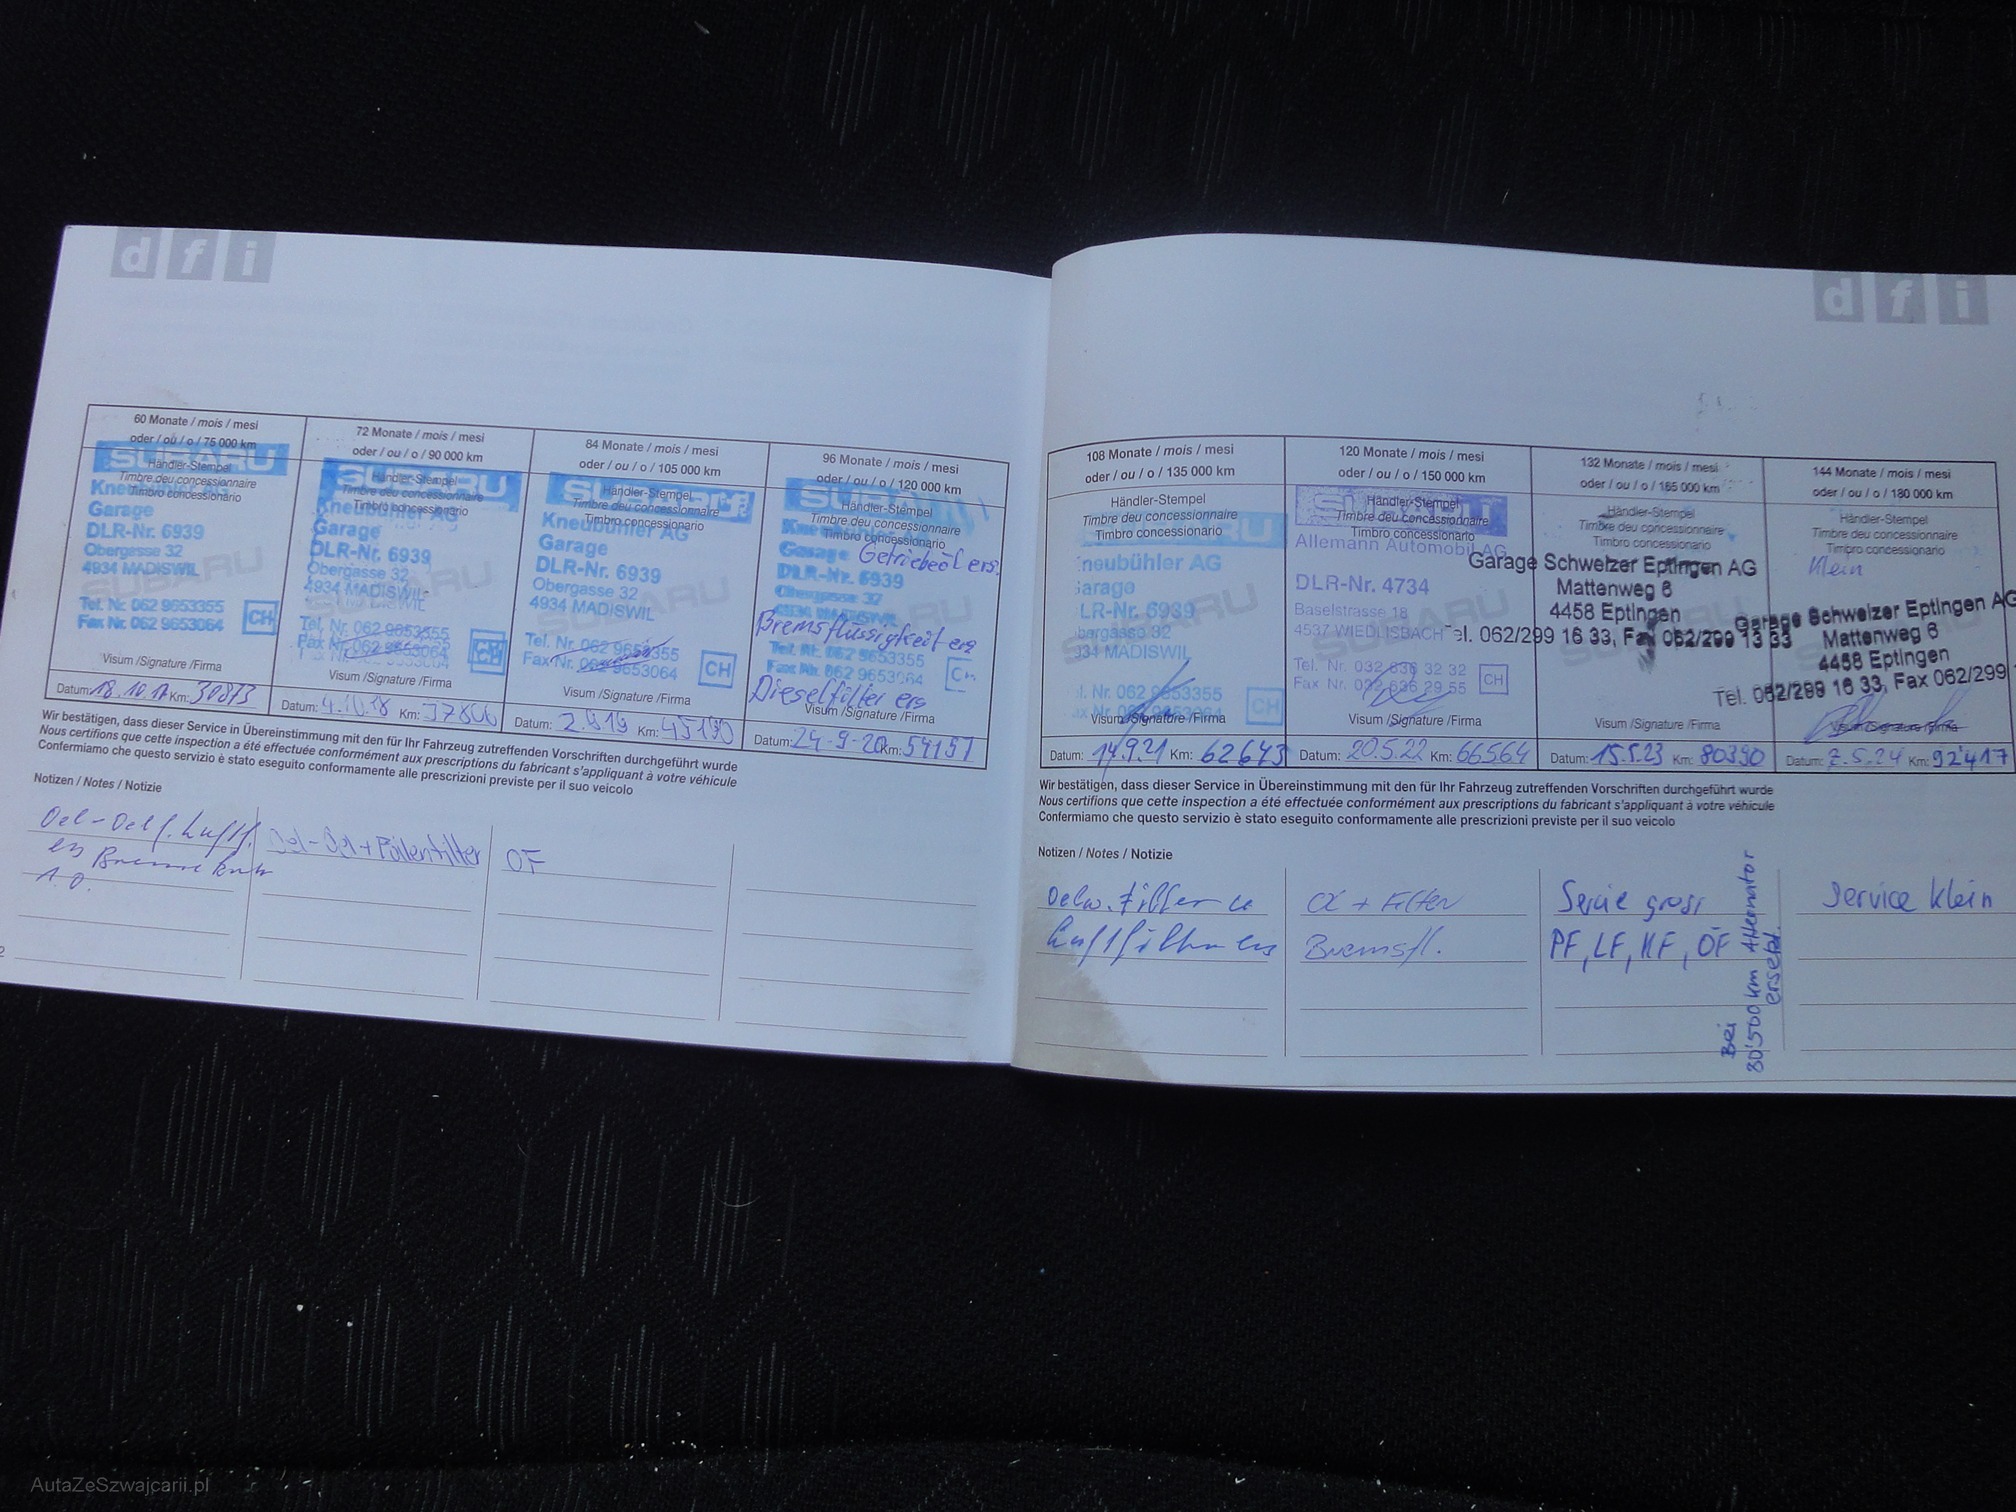 d f i
60 Monate / mois / mesi
oder / ou / o / 75 000 km
SUBARU
Händler-Stempel
Timbre deu concessionnaire
Timbro concessionario
Kneubühler AG
Garage
DLR-Nr. 6939
Obergasse 32
4934 MADISWIL
Tel. Nr. 062 9653355
Fax Nr. 062 9653064
CH
Visum /Signature /Firma
Datum: 18.10.17 Km: 30873
72 Monate / mois / mesi
oder / ou / o / 90 000 km
SUBARU
Händler-Stempel
Timbre deu concessionnaire
Timbro concessionario
Kneubühler AG
Garage
DLR-Nr. 6939
Obergasse 32
4934 MADISWIL
Tel. Nr. 062 9653355
Fax Nr. 062 9653064
CH
Visum /Signature /Firma
Datum: 4.10.18 Km: 37806
84 Monate / mois / mesi
oder / ou / o / 105 000 km
SUBARU
Händler-Stempel
Timbre deu concessionnaire
Timbro concessionario
Kneubühler AG
Garage
DLR-Nr. 6939
Obergasse 32
4934 MADISWIL
Tel. Nr. 062 9653355
Fax Nr. 062 9653064
CH
Visum /Signature /Firma
Datum: 2.9.19 Km: 45190
96 Monate / mois / mesi
oder / ou / o / 120 000 km
Händler-Stempel
Timbre deu concessionnaire
Timbro concessionario
Garage
Getriebeoel ers.
DLR-Nr. 6939
Obergasse 32
4934 MADISWIL
Bremsflüssigkeit ers
Tel. Nr. 062 9653355
Fax Nr. 062 9653064
Dieselfilter ers
Visum /Signature /Firma
Datum: 24-9-20 Km: 54157
Wir bestätigen, dass dieser Service in Übereinstimmung mit den für Ihr Fahrzeug zutreffenden Vorschriften durchgeführt wurde
Nous certifions que cette inspection a été effectuée conformément aux prescriptions du fabricant s'appliquant à votre véhicule
Confermiamo che questo servizio è stato eseguito conformamente alle prescrizioni previste per il suo veicolo
Notizen / Notes / Notizie
Oel-Oelf. Luftf.
Oel-Oel+Pollenfilter
OF
2
d f i
108 Monate / mois / mesi
oder / ou / o / 135 000 km
Händler-Stempel
Timbre deu concessionnaire
Timbro concessionario
neubühler AG
arage
LR-Nr. 6939
bergasse 32
934 MADISWIL
l. Nr. 062 9653355
ax Nr. 062 9653064
CH
Visum /Signature /Firma
Datum: 14.9.21 Km: 62643
120 Monate / mois / mesi
oder / ou / o / 150 000 km
SUBARU
Händler-Stempel
Timbre deu concessionnaire
Timbro concessionario
Allemann Automobil AG
DLR-Nr. 4734
Baselstrasse 18
4537 WIEDLISBACH
Tel. Nr. 032 636 32 32
Fax Nr. 032 636 29 55
CH
Visum /Signature /Firma
Datum: 20.5.22 Km: 66564
132 Monate / mois / mesi
oder / ou / o / 165 000 km
Händler-Stempel
Timbre deu concessionnaire
Timbro concessionario
Garage Schweizer Eptingen AG
Mattenweg 6
4458 Eptingen
Tel. 062/299 16 33, Fax 062/299 13 33
Visum /Signature /Firma
Datum: 15.5.23 Km: 80390
144 Monate / mois / mesi
oder / ou / o / 180 000 km
Händler-Stempel
Timbre deu concessionnaire
Timbro concessionario
Klein
Garage Schweizer Eptingen AG
Mattenweg 6
4458 Eptingen
Tel. 062/299 16 33, Fax 062/299
Visum /Signature /Firma
Datum: 7.5.24 Km: 92'417
Wir bestätigen, dass dieser Service in Übereinstimmung mit den für Ihr Fahrzeug zutreffenden Vorschriften durchgeführt wurde
Nous certifions que cette inspection a été effectuée conformément aux prescriptions du fabricant s'appliquant à votre véhicule
Confermiamo che questo servizio è stato eseguito conformamente alle prescrizioni previste per il suo veicolo
Notizen / Notes / Notizie
Oelw. Filter
Luftfilter ers
+ Filter
Bremsfl.
Servie gross
PF, LF, KF, ÖF
Bei
80'500 km Alternator
ersetzt.
Service klein
AutaZeSzwajcarii.pl